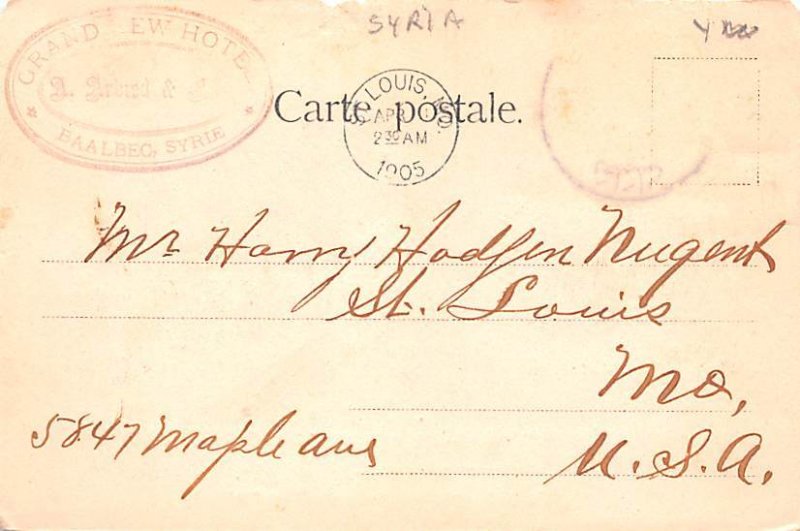 SYRIA
GRAND NEW HOTEL
BAALBEC, SYRIE
Carte postale.
ST. LOUIS, MO.
APR
2 30 AM
1905
Mr Harry Hodgen Nugent
St. Louis
Mo,
5847 Maple ave
U.S.A.